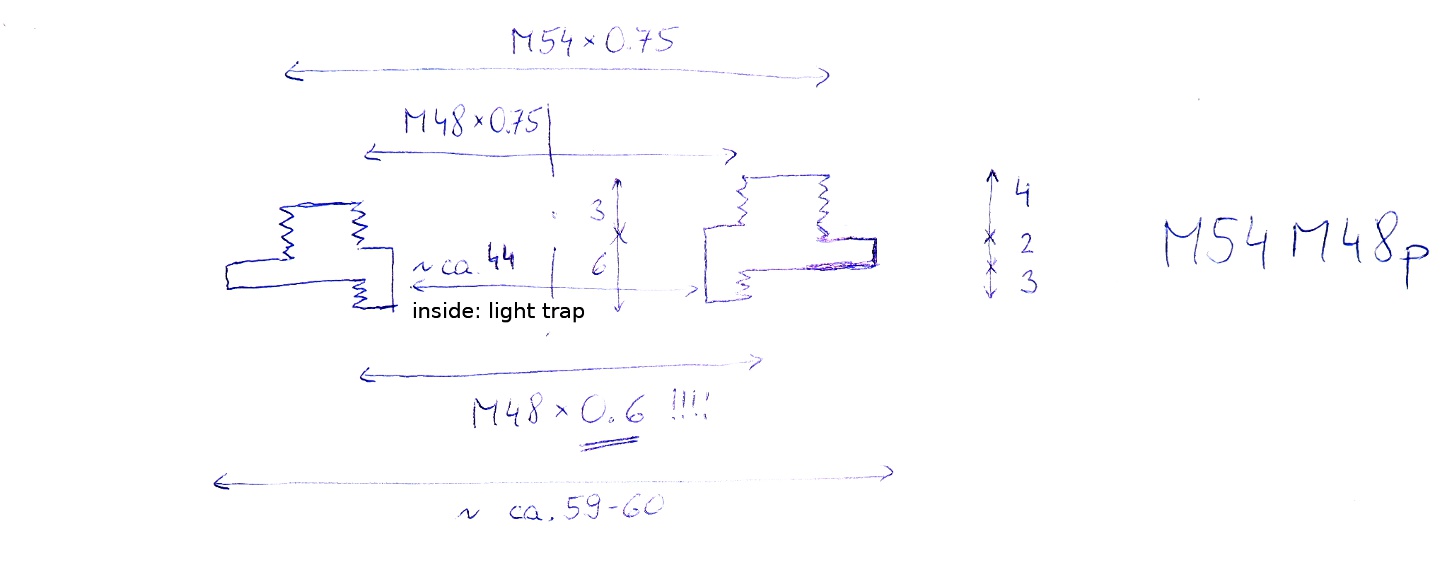 M54×0.75
M48×0.75
3
4
~ ca. 44
6
2
3
M54M48p
inside: light trap
M48×0.6 !!!!
~ ca. 59-60